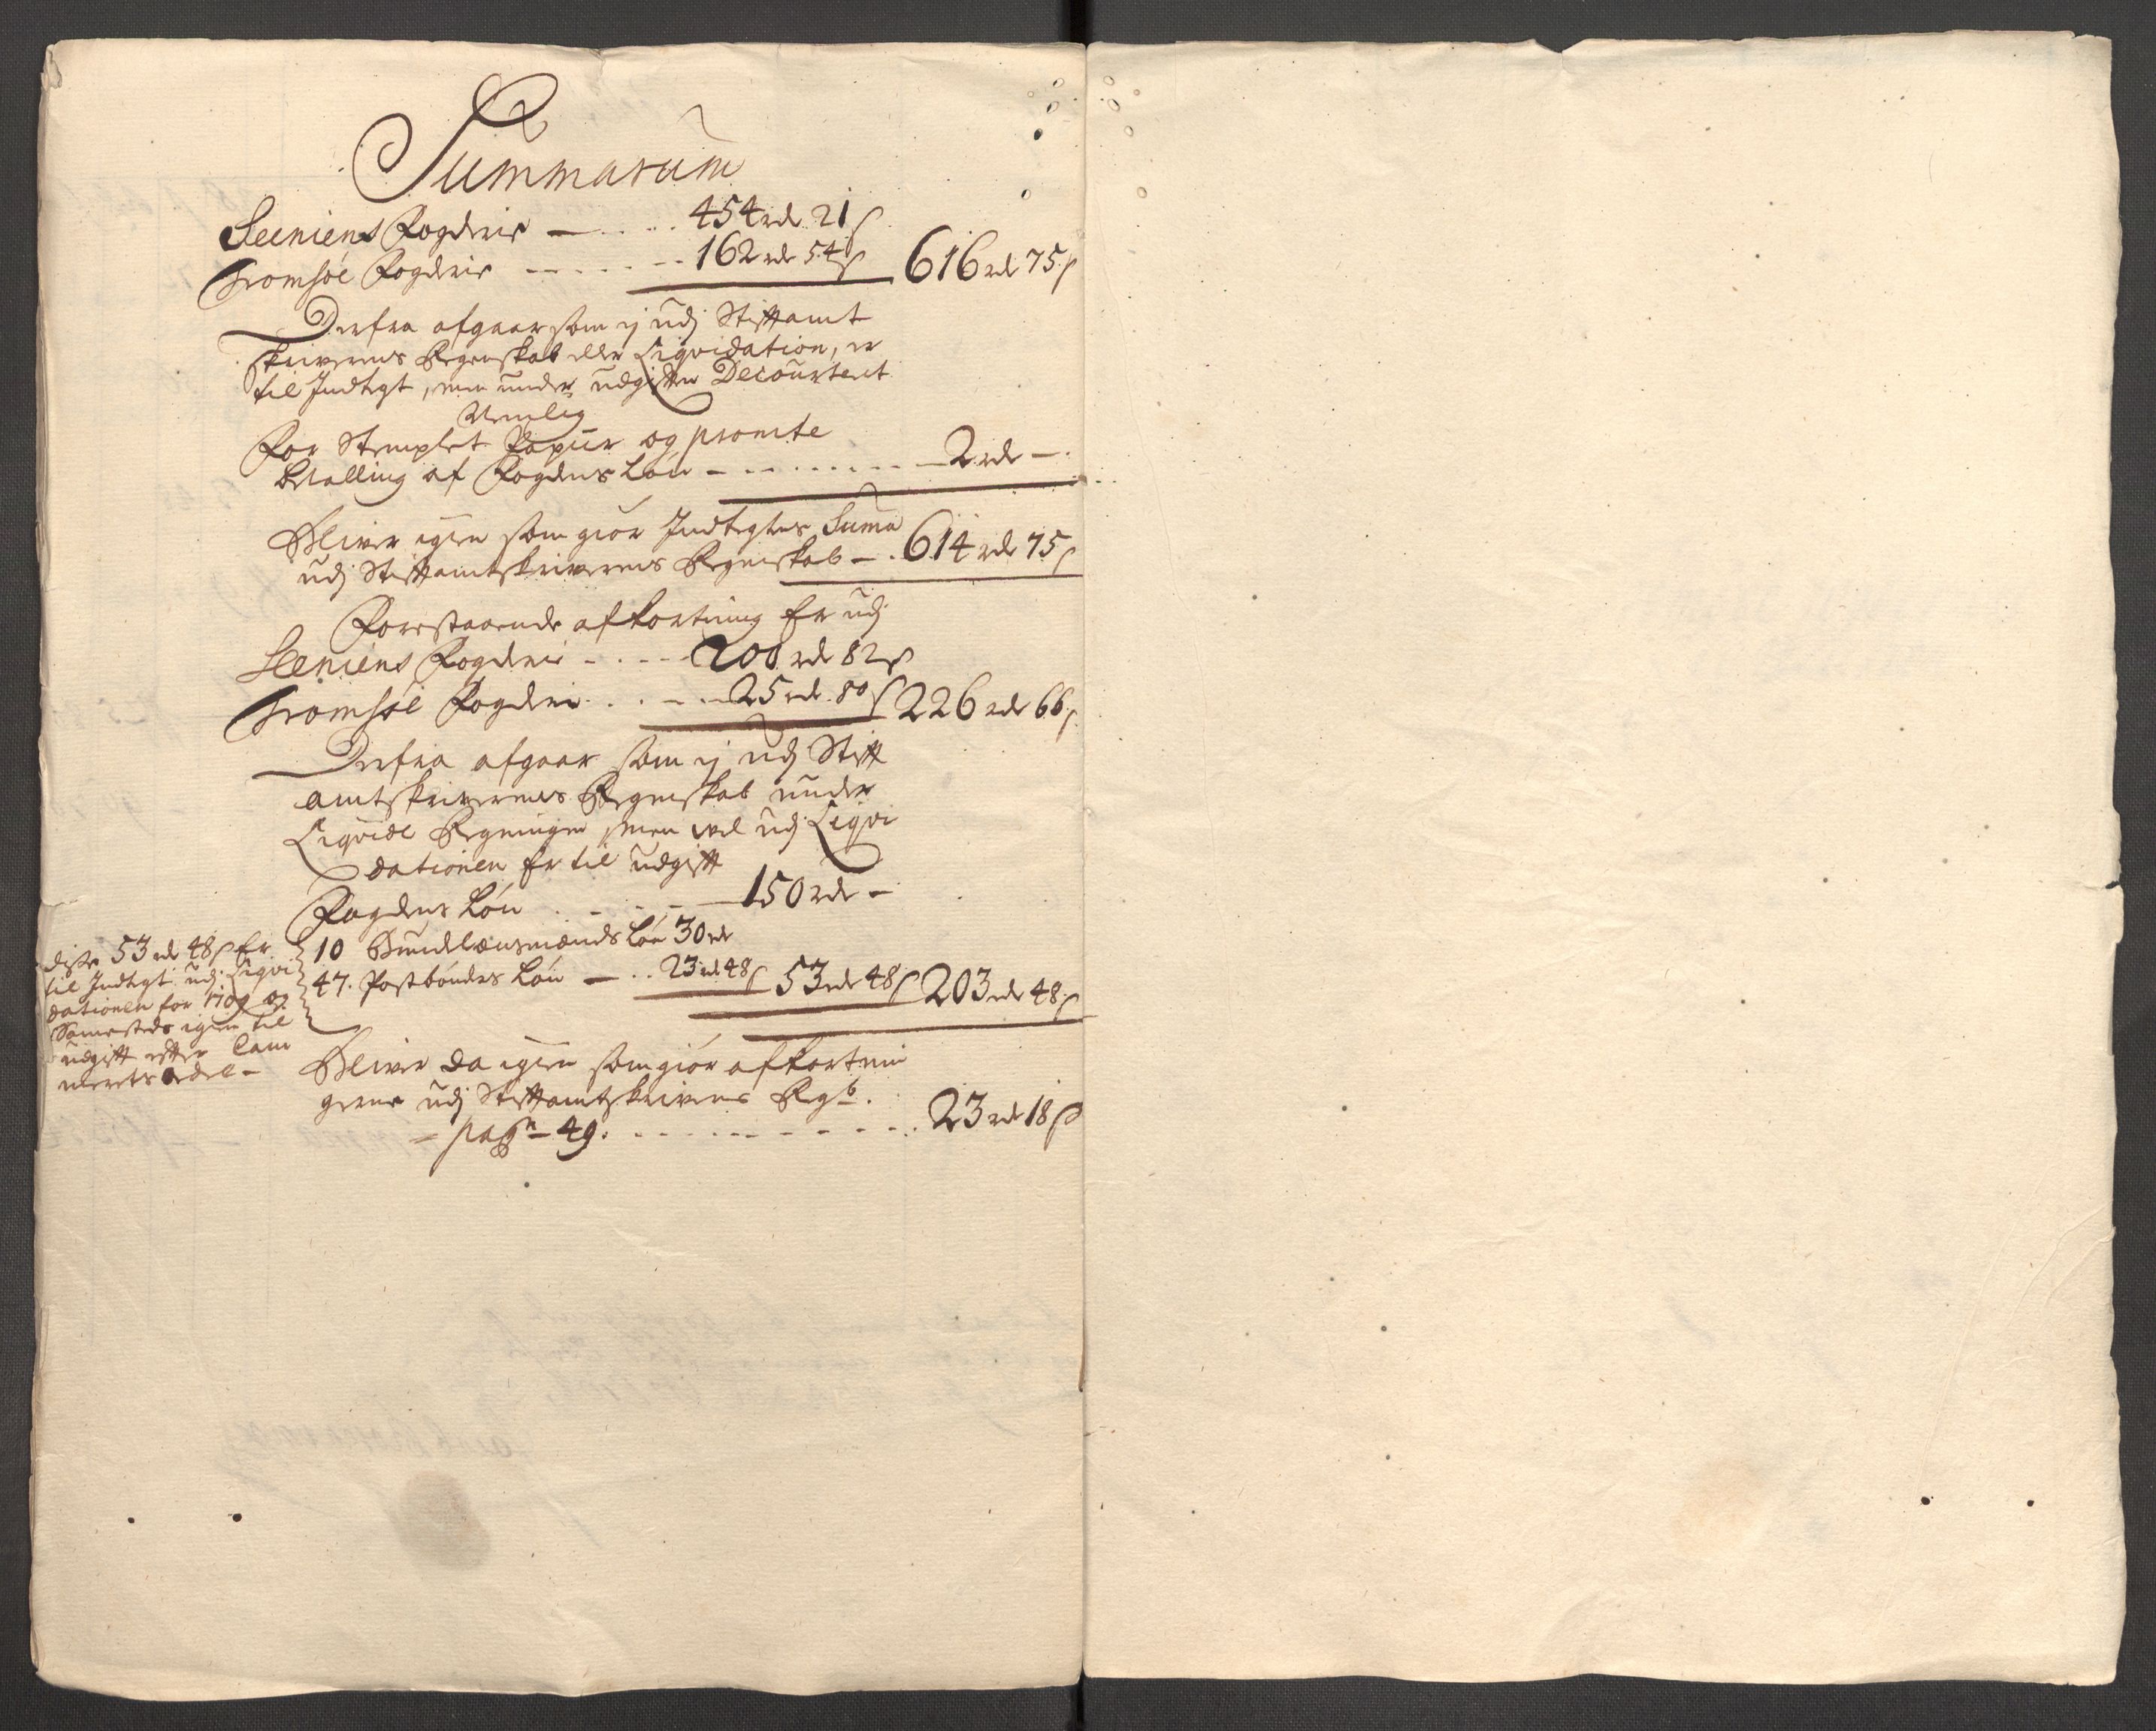 Summarum
Seeniens Fogderie — . . . . 454 rdr 21 s
Tromsøe Fogderie - - - - - - 162 rdr 54 s 616 rdr 75 s
Derfra afgaar som ej udj Stiftamt
skriverens Regenskab eller Liqvidation, er
til Indtegt, men under udgifter Decourterit
Nemlig
For Stemplet Papiir og promte
betalling af Fogdens Løn - - - - - - - - 2 rdr —
Bliver igien som giør Indtegtens Suma
udj Stiftamtskriverens Regenskab — . 614 rdr 75 s
Forestaaende afkortning Er udj
Seeniens Fogderie - . - - - 200 rdr 82 s
Tromsøe Fogderie . . . - - - 25 rdr 80 s 226 rdr 66 s
Derfra afgaar som ej udj Stift
amtskriverens Regenskab under
Liqvide Regninger, men vel udj Liqvi
dationen Er til udgift
Fogdens Løn . . - . - — 150 rdr —
10 Bundlænsmænds Løn 30 rdr
47. Postbønders Løn — . . 23 rdr 48 s 53 rdr 48 s 203 rdr 48 s
disse 53 rdr 48 s Er
til Indtegt udj Liqvi
dationen for 1709 og
Sammesteds igien til
udgift efter Cam
merets
Bliver da igien som giør afkortnin
gerne udj Stiftamtskrivers Rgb.
pag 49. - - - - - - - - - - 23 rdr 18 s